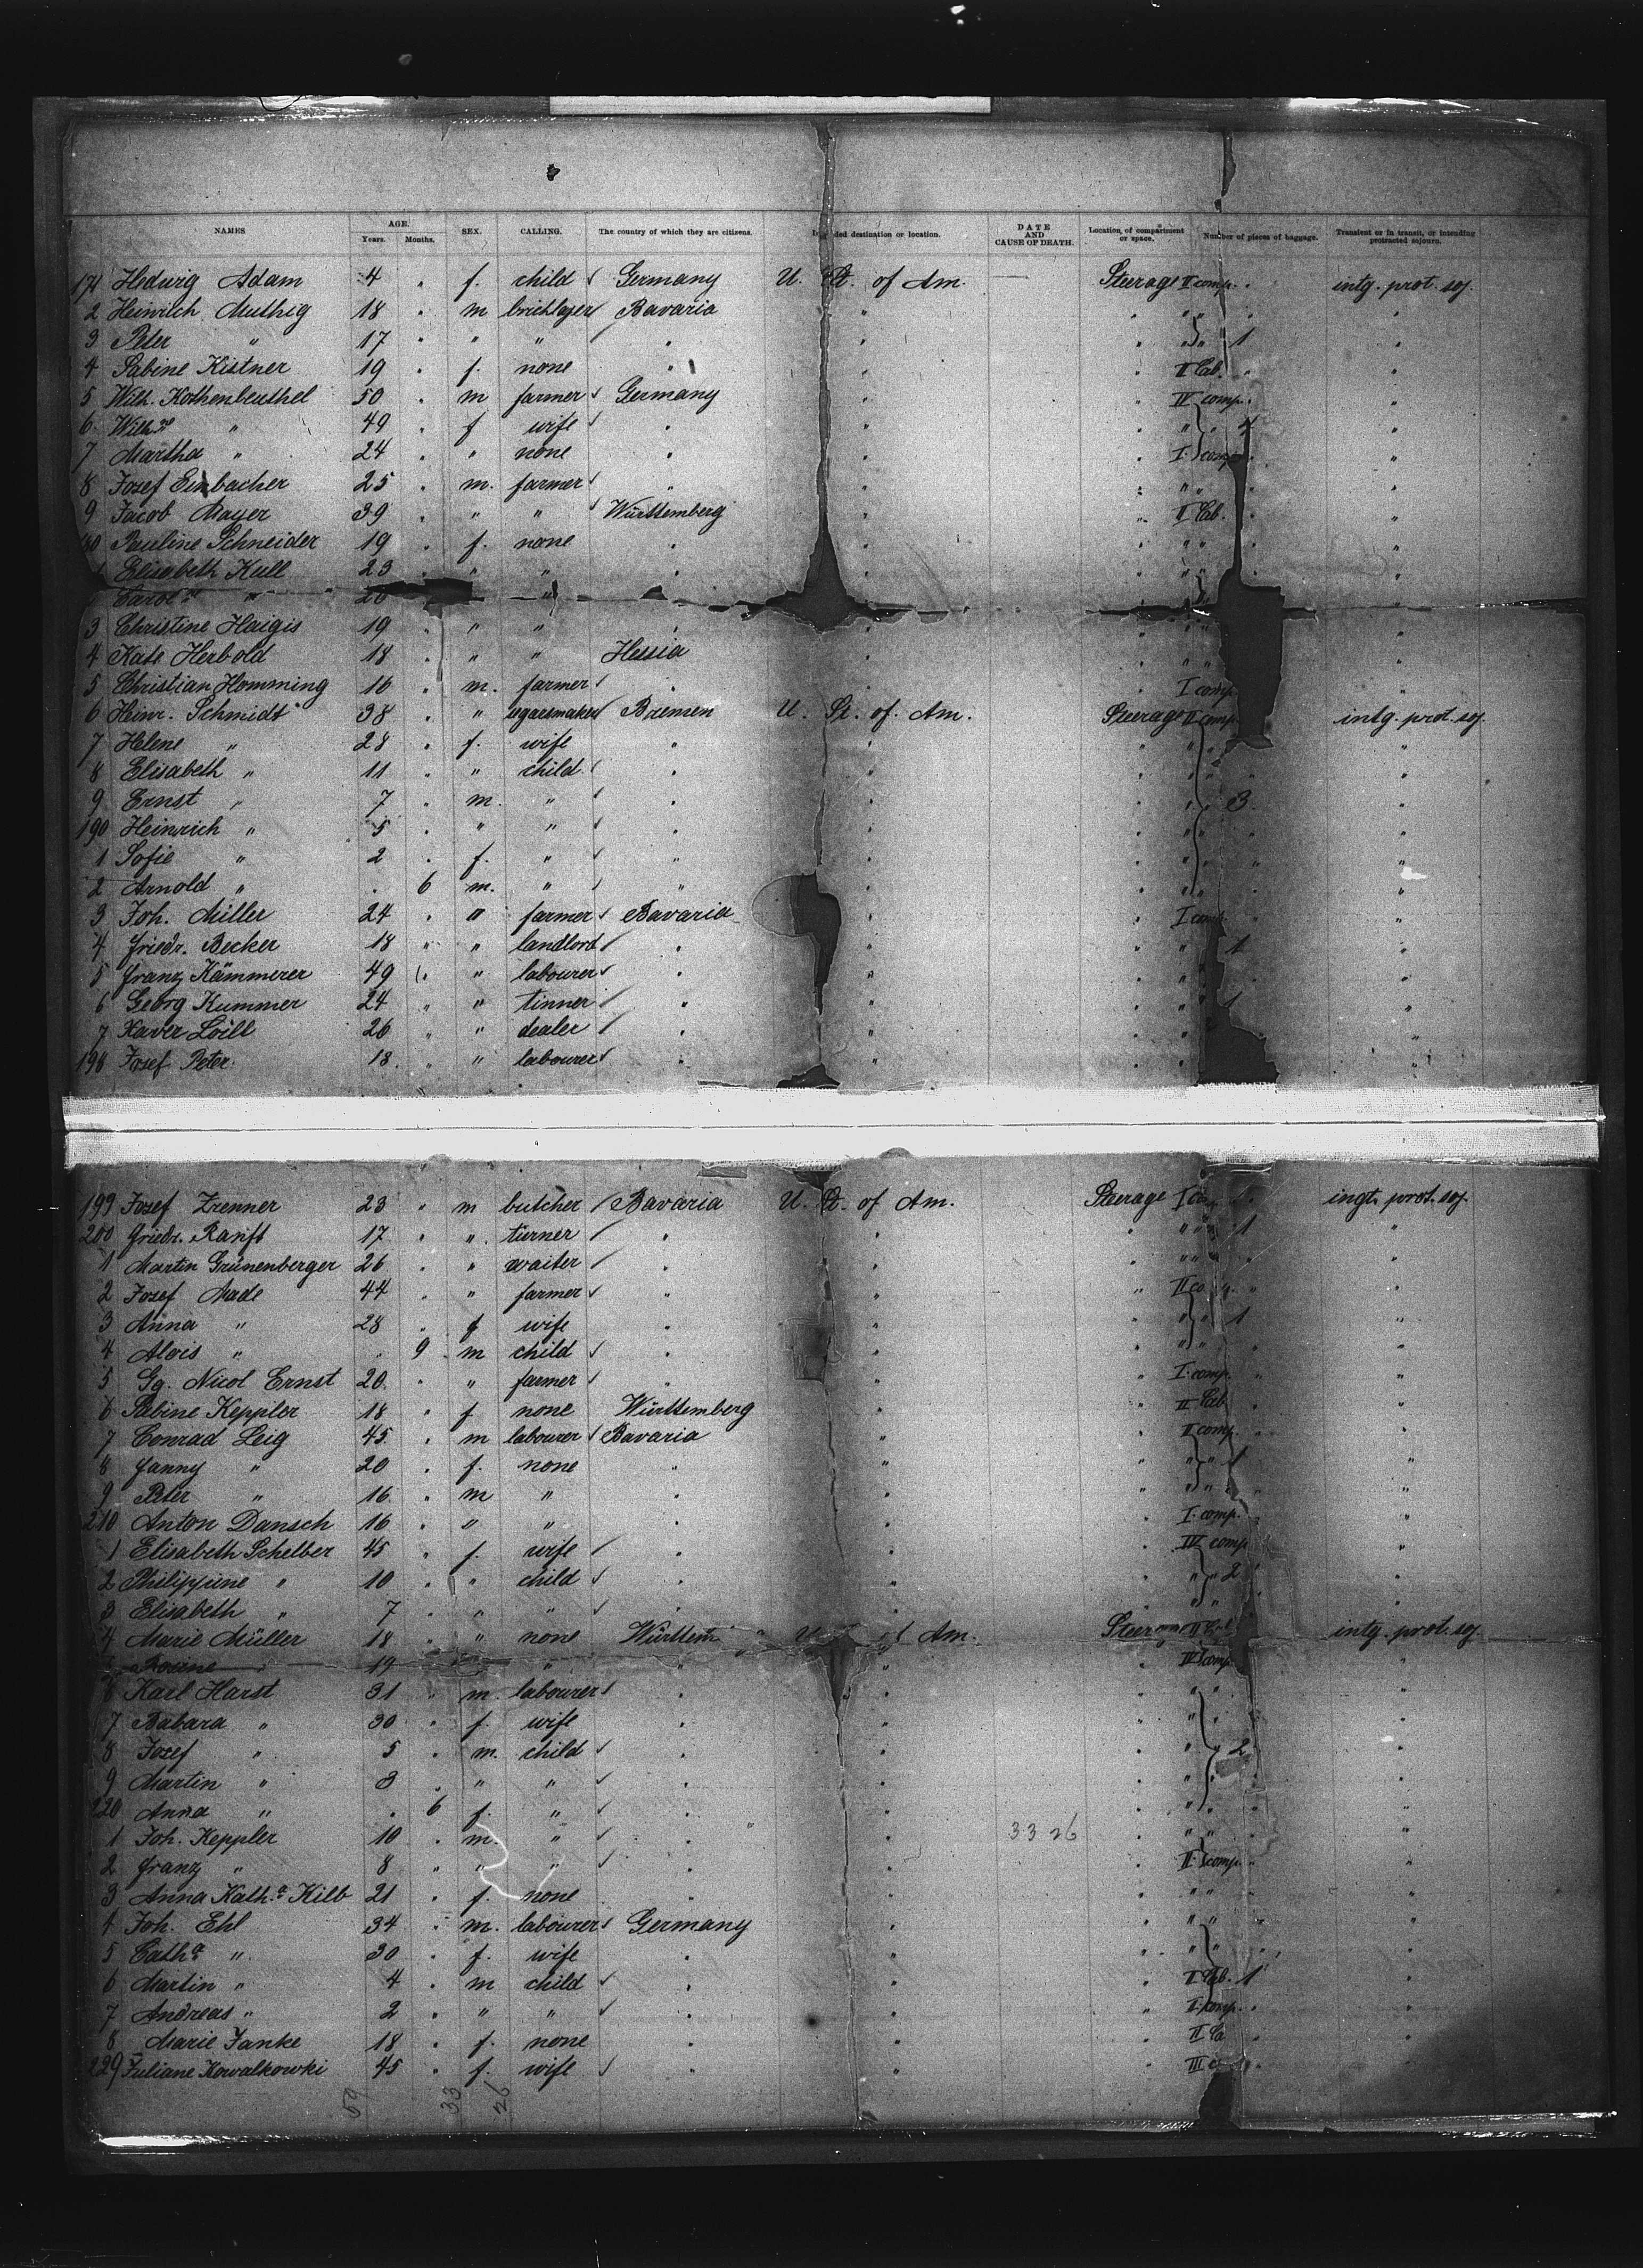 NAMES. AGE. Years. Months. SEX. CALLING. The country of which they are citizens. Intended destination or location. DATE AND CAUSE OF DEATH. Location of compartment or space. Number of pieces of baggage. Transient or in transit, or intending protracted sojourn.
171 Hedwig Adam 4 " f. child Germany U. St. of Am. — Steerage II comp. " intg. prot. soj.
2 Heinrich Muthig 18 " m bricklayer Bavaria " " " " " "
3 Peter " 17 " " " " " " " " 1 "
4 Sabine Kistner 19 " f. none " " " II Cab. " "
5 Wilh. Kothenbeuthel 50 " m farmer Germany " " IV comp. " "
6 Wilh. " 49 " f wife " " " " " "
7 Martha " 24 " " none " " " I. comp. "
8 Josef Einbacher 25 " m. farmer " " " " " "
9 Jacob Mayer 39 " " " Württemberg " " II Cab. " "
180 Pauline Schneider 19 " f. none " " " " " "
Elisabeth Kull 23 " " " " " " " "
Carol. " 20 " " " "
3 Christine Haigis 19 " " " " " " " " "
4 Kate Herbold 18 " " " Hessia " " " " "
5 Christian Homming 16 " m. farmer " " " I comp. "
6 Heinr. Schmidt 38 " " segarsmaker Bremen U. St. of. Am. Steerage II comp. intg. prot. soj.
7 Helene " 28 " f. wife " " " " " "
8 Elisabeth " 11 " " child " " " " " "
9 Ernst " 7 " m. " " " " " " 3 "
190 Heinrich " 5 " " " " " " " " "
1 Sofie " 2 " f. " " " " " " " "
2 Arnold " " 6 m. " " " " " " "
3 Joh. Miller 24 " " farmer Bavaria " " I comp. "
4 Friedr. Becker 18 " " landlord " " " " 1 "
5 Franz Kämmerer 49 " " labourer " " " " " "
6 Georg Kummer 24 " " tinner " " " " 1 "
7 Xaver Loibl 26 " " dealer " " " " "
198 Josef Peter 18 " " labourer " " " " "
199 Josef Zrenner 23 " m butcher Bavaria U. St. of Am. Steerage I Co ingt. prot. soj.
200 Friedr. Ranft 17 " " turner " " " " " 1 "
1 Martin Grünenberger 26 " " waiter " " " " " "
2 Josef Made 44 " " farmer " " " II co " "
3 Anna " 28 " f wife " " " " " 1 "
4 Alois " " 9 m child " " " " " " "
5 Gg. Nicol Ernst 20 " " farmer " " " I. comp. " "
6 Sabine Keppler 18 " f none Württemberg " " II Cab. " "
7 Conrad Leig 45 " m labourer Bavaria " " II comp. " "
8 Fanny " 20 " f. none " " " " " 1 "
9 Peter " 16 " m " " " " " " " "
210 Anton Dansch 16 " " " " " " I. comp. " "
1 Elisabeth Schelber 45 " f. wife " " " IV comp. "
2 Philippine " 10 " " child " " " " " 2 "
3 Elisabeth " 7 " " " " " " " " "
4 Marie Müller 18 " " none Württem " U. St Am. Steerage II Cab. intg. prot. soj.
Rosine " 19 " " " " " IV comp. "
6 Karl Harst 31 " m. labourer " " " " " "
7 Babara " 30 " f. wife " " " " " "
8 Josef " 5 " m. child " " " " 2 "
9 Martin " 3 " " " " " " " " "
220 Anna " " 6 f. " " " " " " "
1 Joh. Keppler 10 " m. " " " 33 26 " " " "
2 Franz " 8 " " " " " " II. comp. " "
3 Anna Kath.a Kilb 21 " f. none " " " " " "
4 Joh. Ehl 34 " m. labourer Germany " " " " "
5 Cath.a " 30 " f. wife " " " " " " "
6 Martin " 4 " m child " " " II Cab. 1 "
7 Andreas " 2 " " " " " " II. comp. " "
8 Marie Janke 18 " f. none " " " II Ca " "
229 Juliane Kowalkowki 45 " f. wife " " " III c " "
59 33 26